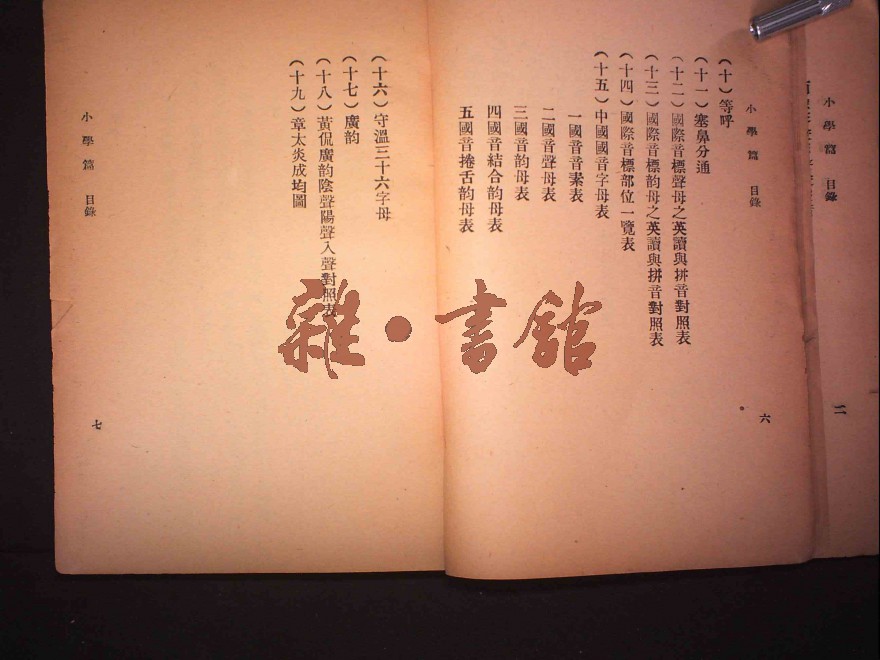 小學篇 目錄
二
小學篇 目錄
六
(十)等呼
(十一)塞鼻分通
(十二)國際音標聲母之英讀與拼音對照表
(十三)國際音標韵母之英讀與拼音對照表
(十四)國際音標部位一覽表
(十五)中國國音字母表
一國音音素表
二國音聲母表
三國音韵母表
四國音結合韵母表
五國音捲舌韵母表
(十六)守溫三十六字母
(十七)廣韵
(十八)黃侃廣韵陰聲陽聲入聲對照表
(十九)章太炎成均圖
小學篇 目錄
七
雜·書館